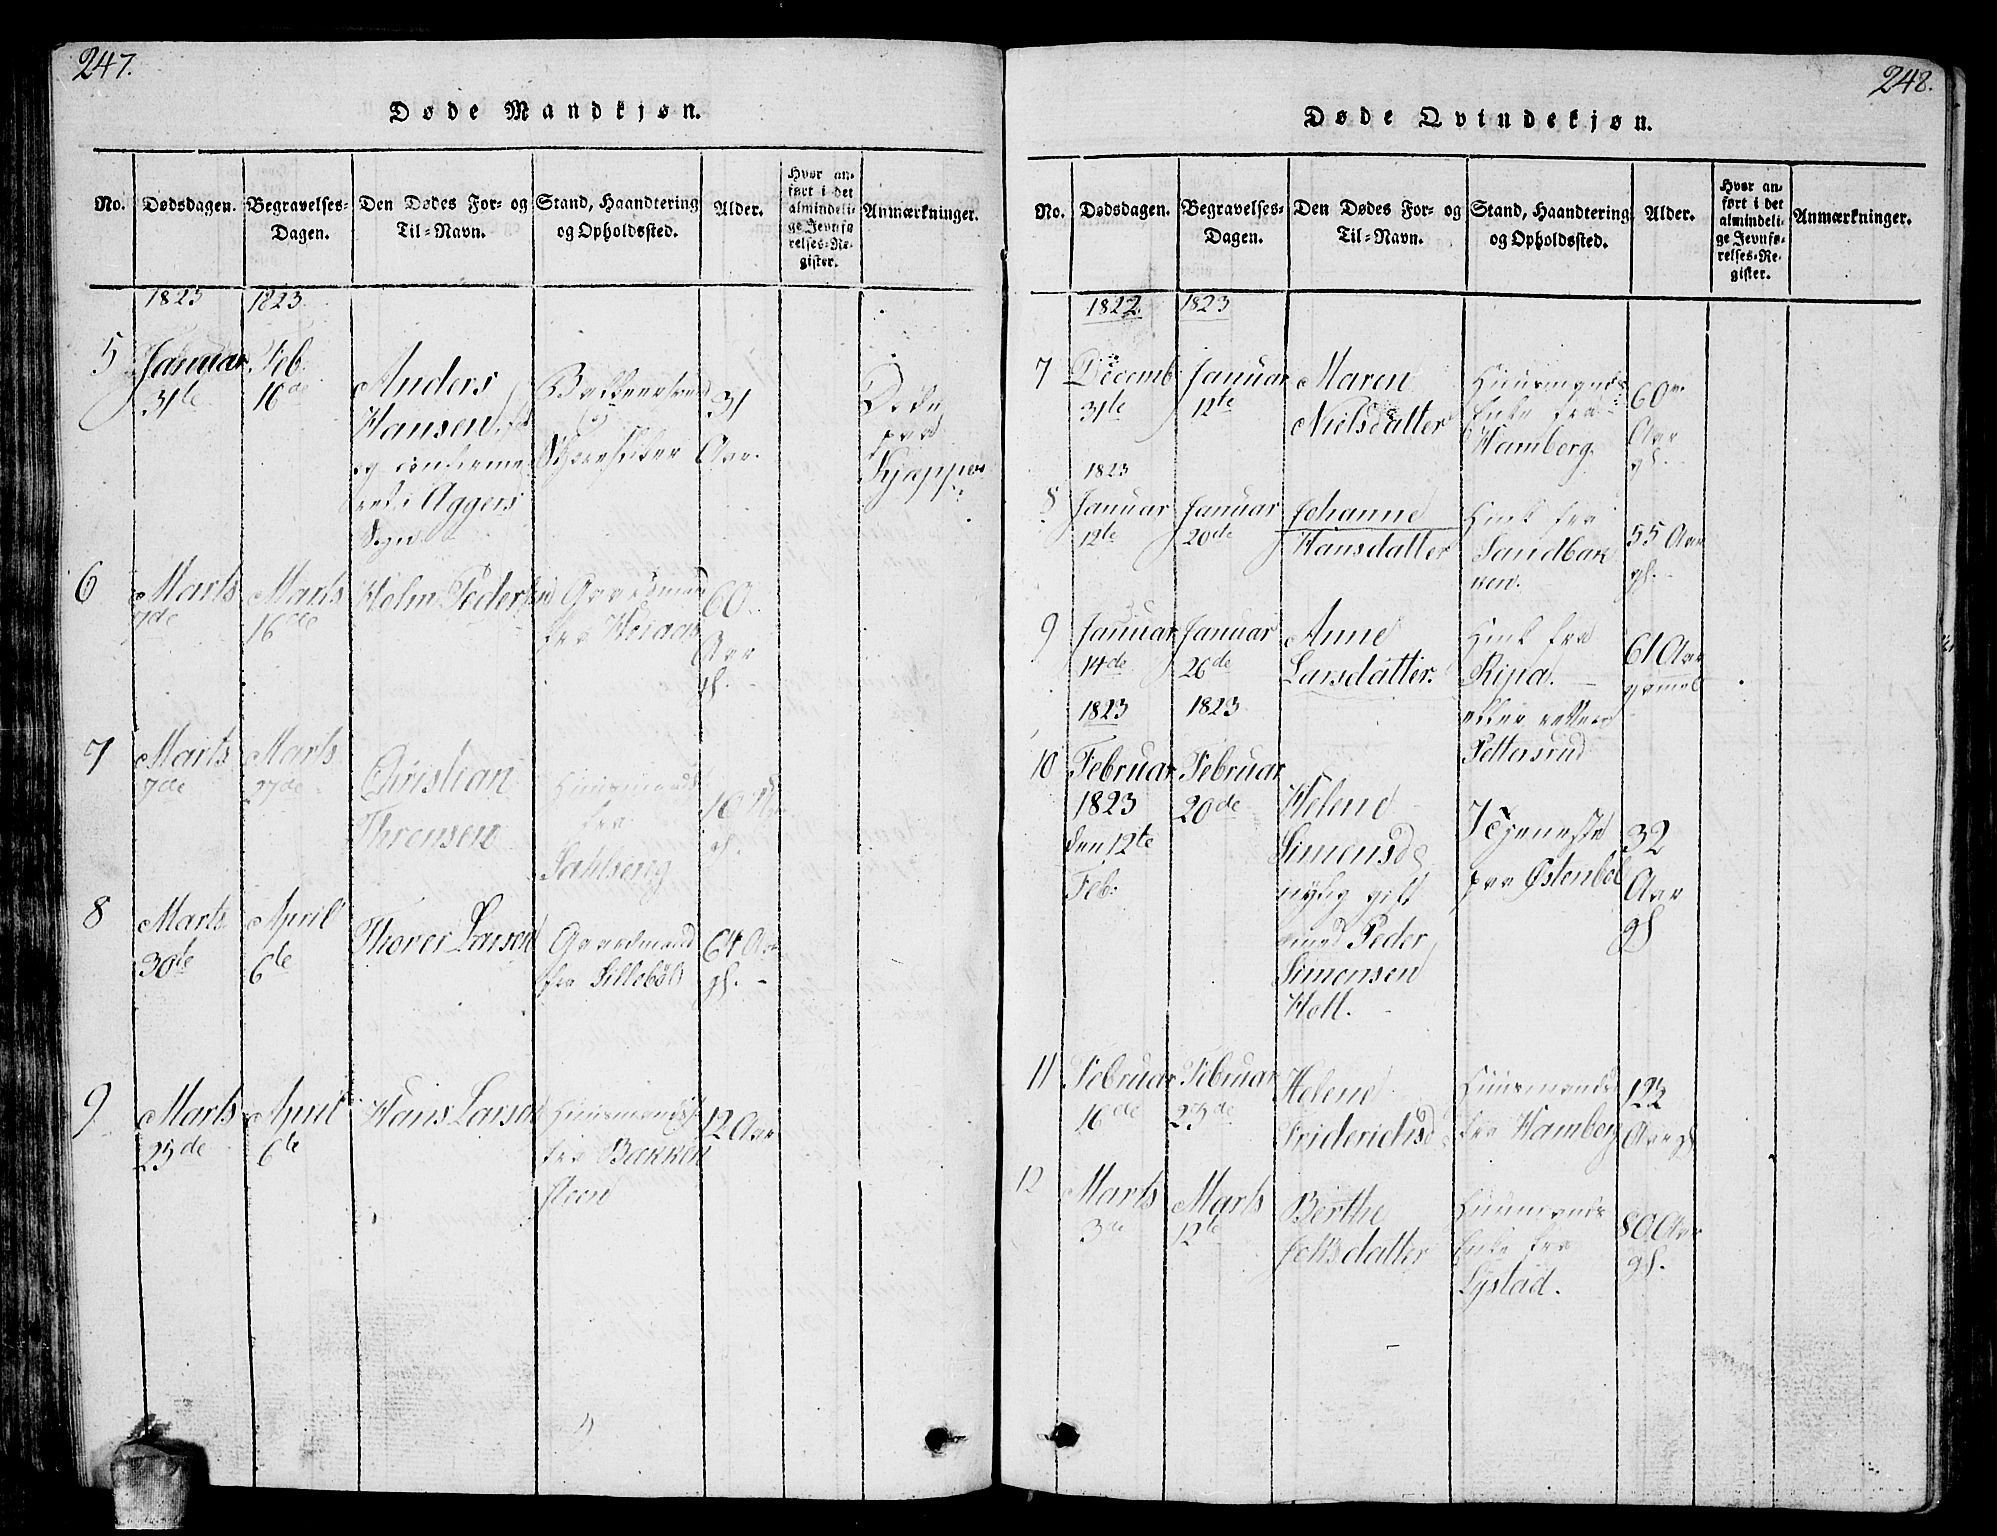 247.
Døde Mandkjøn.
No. Dødsdagen. Begravelses-Dagen. Den Dødes For- og Til-Navn. Stand, Haandtering og Opholdssted. Alder. Hvor anført i det almindelige Jevnførelses-Register. Anmærkninger.
1823 1823.
5 Januar 31te
Feb. 16de
Anders
Hansen
og confirme
ret i Aggers
Sogn
31
Aar.
Døde
paa
6 Marts 7de
Marts 16de
Holm Peders
Gaardmand
fra
60
Aar
gl.
7 Marts 7de
Marts 27de
Christian
Thronsen
Huusmands
fra
gl.
8 Marts 30te
April 6te
Thorer Larsen
Gaardmand
fra Sillebøl
64 Aar
gl.
9 Marts 23de
April 6te
Hans Larsen
Huusmands
fra Bakken
steen
12 Aar
248.
Døde Qvindekjøn.
No. Dødsdagen. Begravelses-Dagen. Den Dødes For- og Til-Navn. Stand, Haandtering og Opholdssted. Alder. Hvor anført i det almindelige Jevnførelses-Register. Anmærkninger.
1822. 1823
7 Decemb 31te
Januar 12te
Maren
Nielsdatter
Huusmands
Enke fra
Hamberg.
60
Aar
gl.
1823
8 Januar 12te
Januar 20de
Johanne
Hansdatter
fra
Sandbak
ken.
55 Aar
gl.
9 Januar 14de
Januar 26de
Anne
Larsdatter.
fra
Ripa.
61 Aar
gamel
1823 1823
efter
Pettersrud
10 Februar
1823
den 12te
Feb.
Februar 20de
Helene
Simensd
nylig gift
med Peder
Simensen
Holt.
Tjeneste
paa Østenbøl
32
Aar
gl
11 Februar 16de
Februar 23de
Helene
Friderichsd
Huusmands
fra Hamberg
Aar gl
12 Marts 3de
Marts 12te
Berthe
Huusmands
Enke fra
Lystad.
80 Aar
gl.